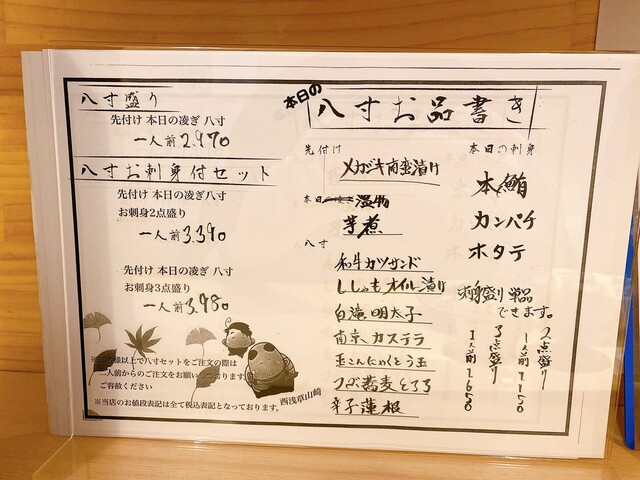 八寸盛り
先付け 本日の凌ぎ 八寸
一人前 2.970
八寸お刺身付セット
先付け 本日の凌ぎ 八寸
お刺身2点盛り
一人前 3.390
先付け 本日の凌ぎ 八寸
お刺身3点盛り
一人前 3.980
人前からのご注文をお願いしております
ご容赦ください
※当店のお値段表記は全て税込表記となっております。
西浅草山崎
本日の
八寸お品書き
先付け
本日
温物
芋煮
八寸
和牛カツサンド
ししゃもオイル漬け
白滝明太子
南京カステラ
玉こんにゃくとう玉
蕎麦とろろ
辛子蓮根
本日の刺身
本鮪
カンパチ
ホタテ
刺身盛り単品
できます。
2点盛り
1人前
3点盛り
1人前 2650